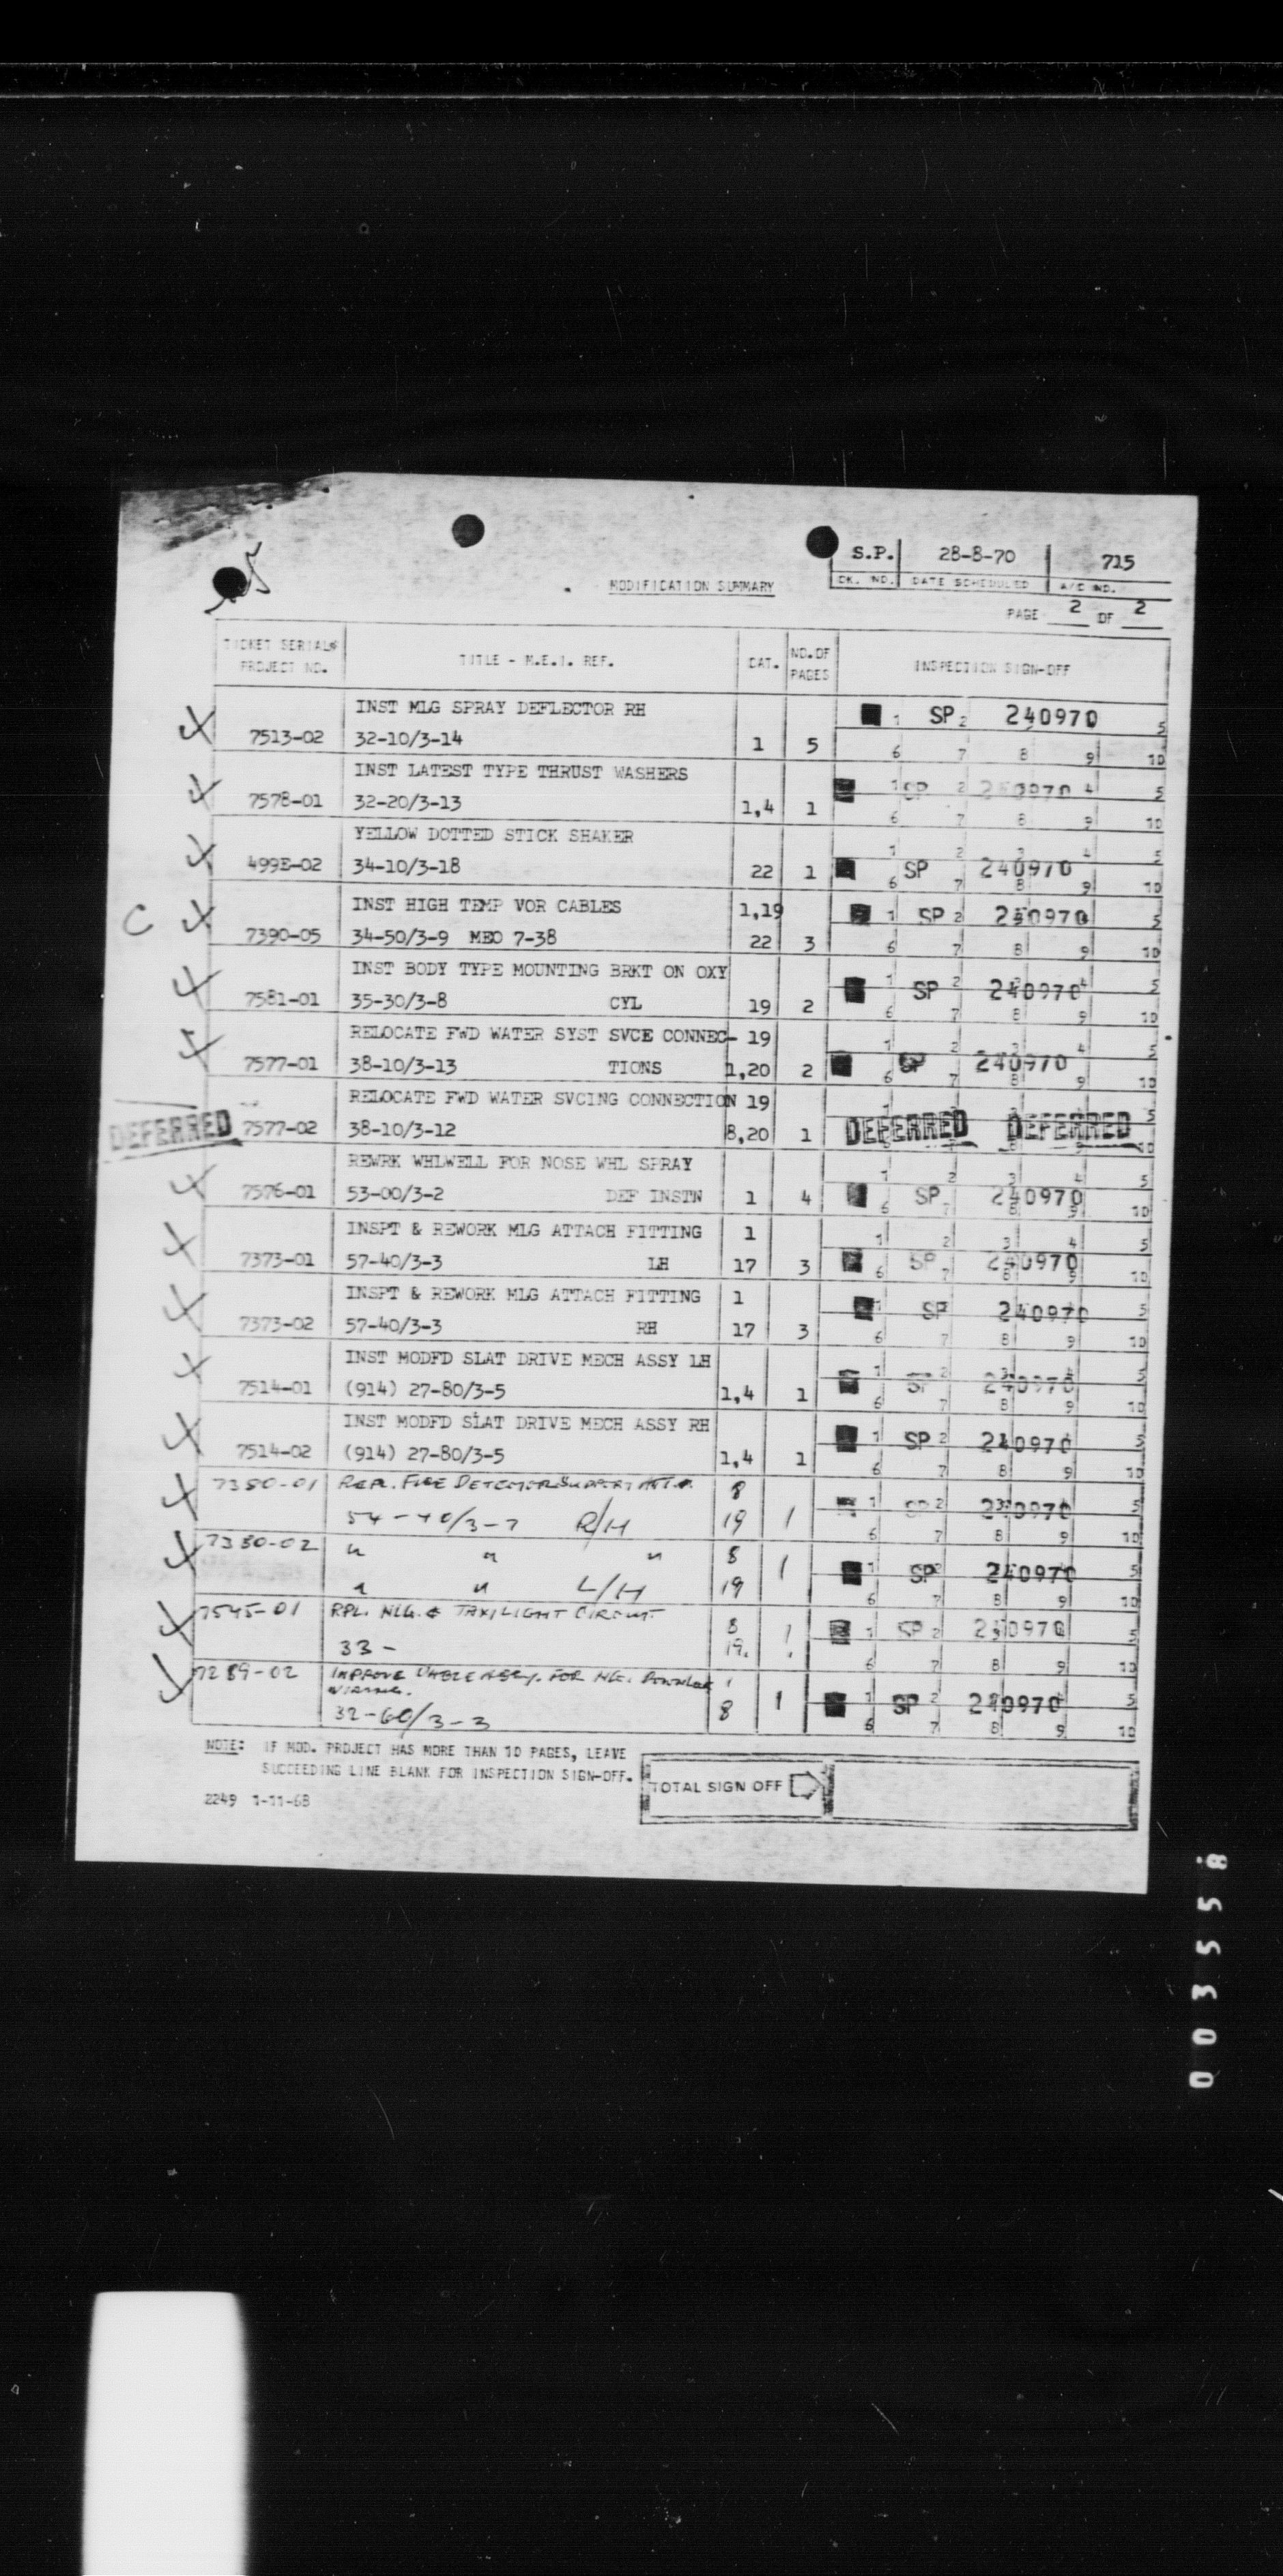 S.P. 28-8-70 715
CK. NO. DATE SCHEDULED A/C NO.
MODIFICATION SUMMARY
PAGE 2 OF 2
TICKET SERIAL& PROJECT NO. TITLE - M.E.I. REF. CAT. NO.OF PAGES INSPECTION SIGN-OFF
INST MLG SPRAY DEFLECTOR RH 1 SP 2 240970 5
7513-02 32-10/3-14 1 5 6 7 8 9 10
INST LATEST TYPE THRUST WASHERS 1 SP 2 240970 4 5
7578-01 32-20/3-13 1,4 1 6 7 8 9 10
YELLOW DOTTED STICK SHAKER 1 2 3 4 5
499E-02 34-10/3-18 22 1 SP 240970 6 7 8 9 10
C INST HIGH TEMP VOR CABLES 1,19 1 SP 2 240970 5
7390-05 34-50/3-9 MEO 7-38 22 3 6 7 8 9 10
INST BODY TYPE MOUNTING BRKT ON OXY 1 2 3 4 5
7581-01 35-30/3-8 CYL 19 2 SP 240970 6 7 8 9 10
RELOCATE FWD WATER SYST SVCE CONNEC- 19 1 2 3 4 5
7577-01 38-10/3-13 TIONS 1,20 2 SP 240970 6 7 8 9 10
RELOCATE FWD WATER SVCING CONNECTION 19 5
DEFERRED 7577-02 38-10/3-12 8,20 1 DEFERRED DEFERRED 10
REWRK WHLWELL FOR NOSE WHL SPRAY 1 2 3 4 5
7576-01 53-00/3-2 DEF INSTN 1 4 SP 240970 6 7 8 9 10
INSPT & REWORK MLG ATTACH FITTING 1 1 2 3 4 5
7373-01 57-40/3-3 LH 17 3 SP 240970 6 7 8 9 10
INSPT & REWORK MLG ATTACH FITTING 1 1 SP 240970 5
7373-02 57-40/3-3 RH 17 3 6 7 8 9 10
INST MODFD SLAT DRIVE MECH ASSY LH 1 2 3 4 5
7514-01 (914) 27-80/3-5 1,4 1 SP 240970 6 7 8 9 10
INST MODFD SLAT DRIVE MECH ASSY RH 1 SP 2 240970 5
7514-02 (914) 27-80/3-5 1,4 1 6 7 8 9 10
7380-01 REPL. FIRE DETECTOR SUPPORT 8 1 SP 2 230970 5
54-40/3-7 R/H 19 1 6 7 8 9 10
7380-02 " " " 8 1 SP 240970 5
" " L/H 19 6 7 8 9 10
7545-01 RPL. NLG. & TAXI LIGHT CIRCUIT 8 1 1 SP 2 230970 5
33- 19. 6 7 8 9 10
7289-02 IMPROVE CABLE ASSY. FOR NLG. DOWNLOCK 1 1 1 SP 2 240970 5
WIRING.
32-60/3-3 8 6 7 8 9 10
NOTE: IF MOD. PROJECT HAS MORE THAN 10 PAGES, LEAVE
SUCCEEDING LINE BLANK FOR INSPECTION SIGN-OFF.
TOTAL SIGN OFF
2249 1-11-68
003558